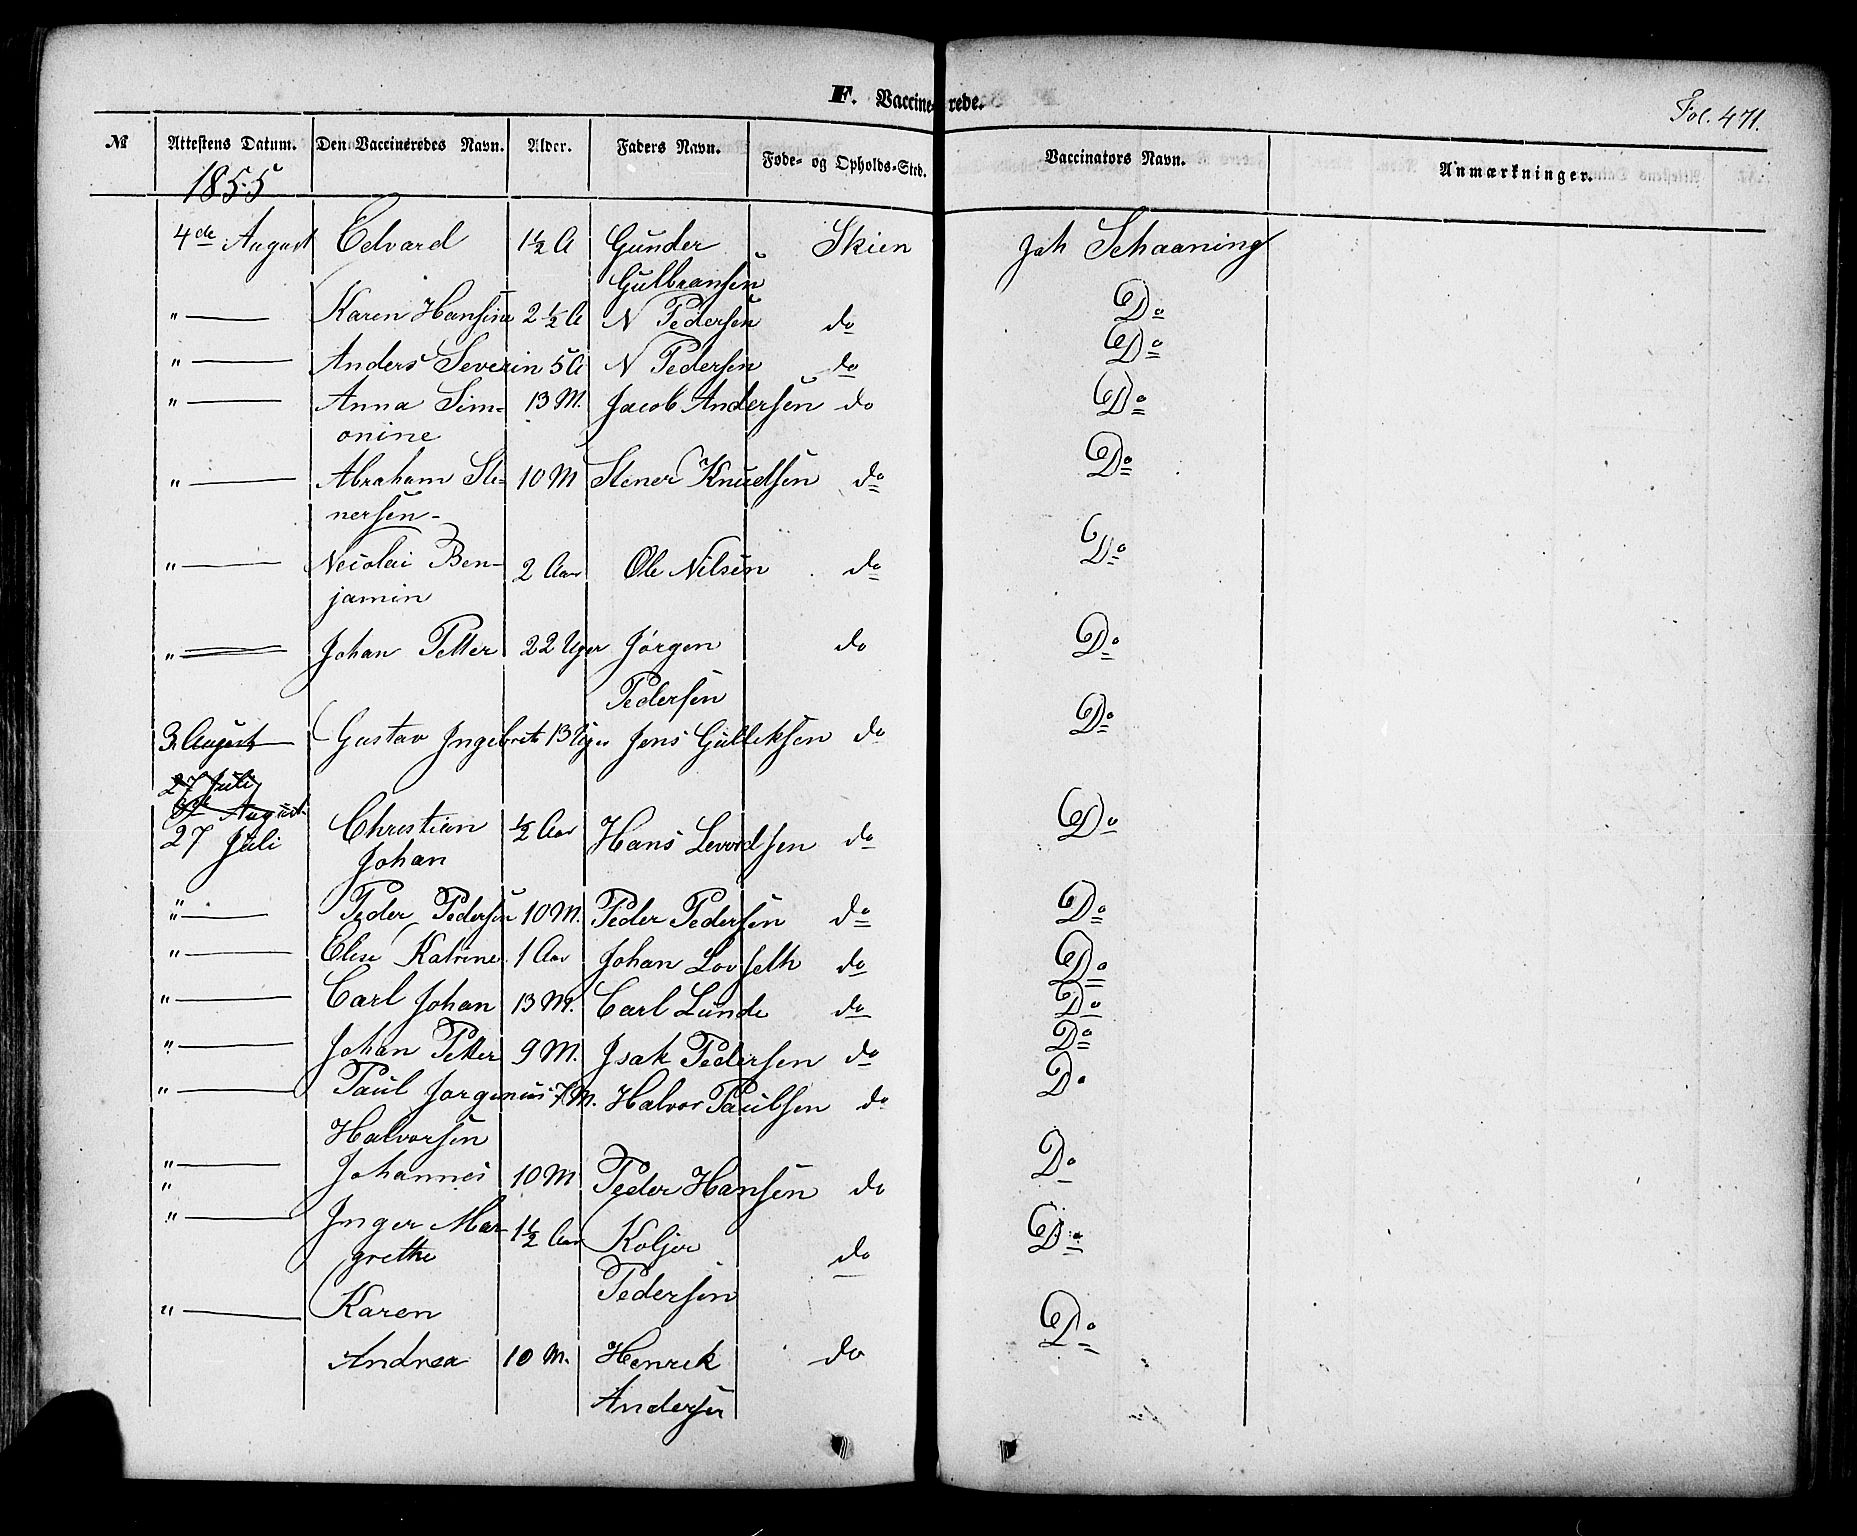 F. Vaccinerede.
Fol. 471.
№ Attestens Datum. Den Vaccineredes Navn. Alder. Faders Navn. Føde- og Opholds-Sted. Vaccinators Navn. Anmærkninger.
1855
4de August Edvard 1½ A Gunder Skien Joh Schaaning
Gulbransen
" Karen Hansine 2½ A N Pedersen do Do
" Anders Severin 5 A N Pedersen do Do
" Anna Sim- 13 M. Jacob Andersen do Do
onine
" Abraham Ste- 10 M Stener Knudsen do Do
nersen-
" Nicolai Ben- 2 Aar Ole Nilsen do Do
jamin
" Johan Petter 22 Uger Jørgen do Do
Pedersen
3 August Gustav Ingebret 13 Uger Jens Gulleksen do Do
27 Juli
3de August
27 Juli Christian ½ Aar Hans Levordsen do Do
Johan
" Peder Pedersen 10 M. Peder Pedersen do Do
" Elise Katrine 1 Aar Johan Lovseth do Do
" Carl Johan 13 M. Carl Lunde do Do
" Johan Petter 9 M. Isak Pedersen do Do
" Paul Jorginus 7 M. Halvor Paulsen do Do
Halvorsen
" Johannes 10 M Peder Hansen do Do
"
" Inger Mar- 1½ Aar Koljor do Do
grethe Pedersen
" Karen Do
Andrea 10 M. Henrik do
Andersen